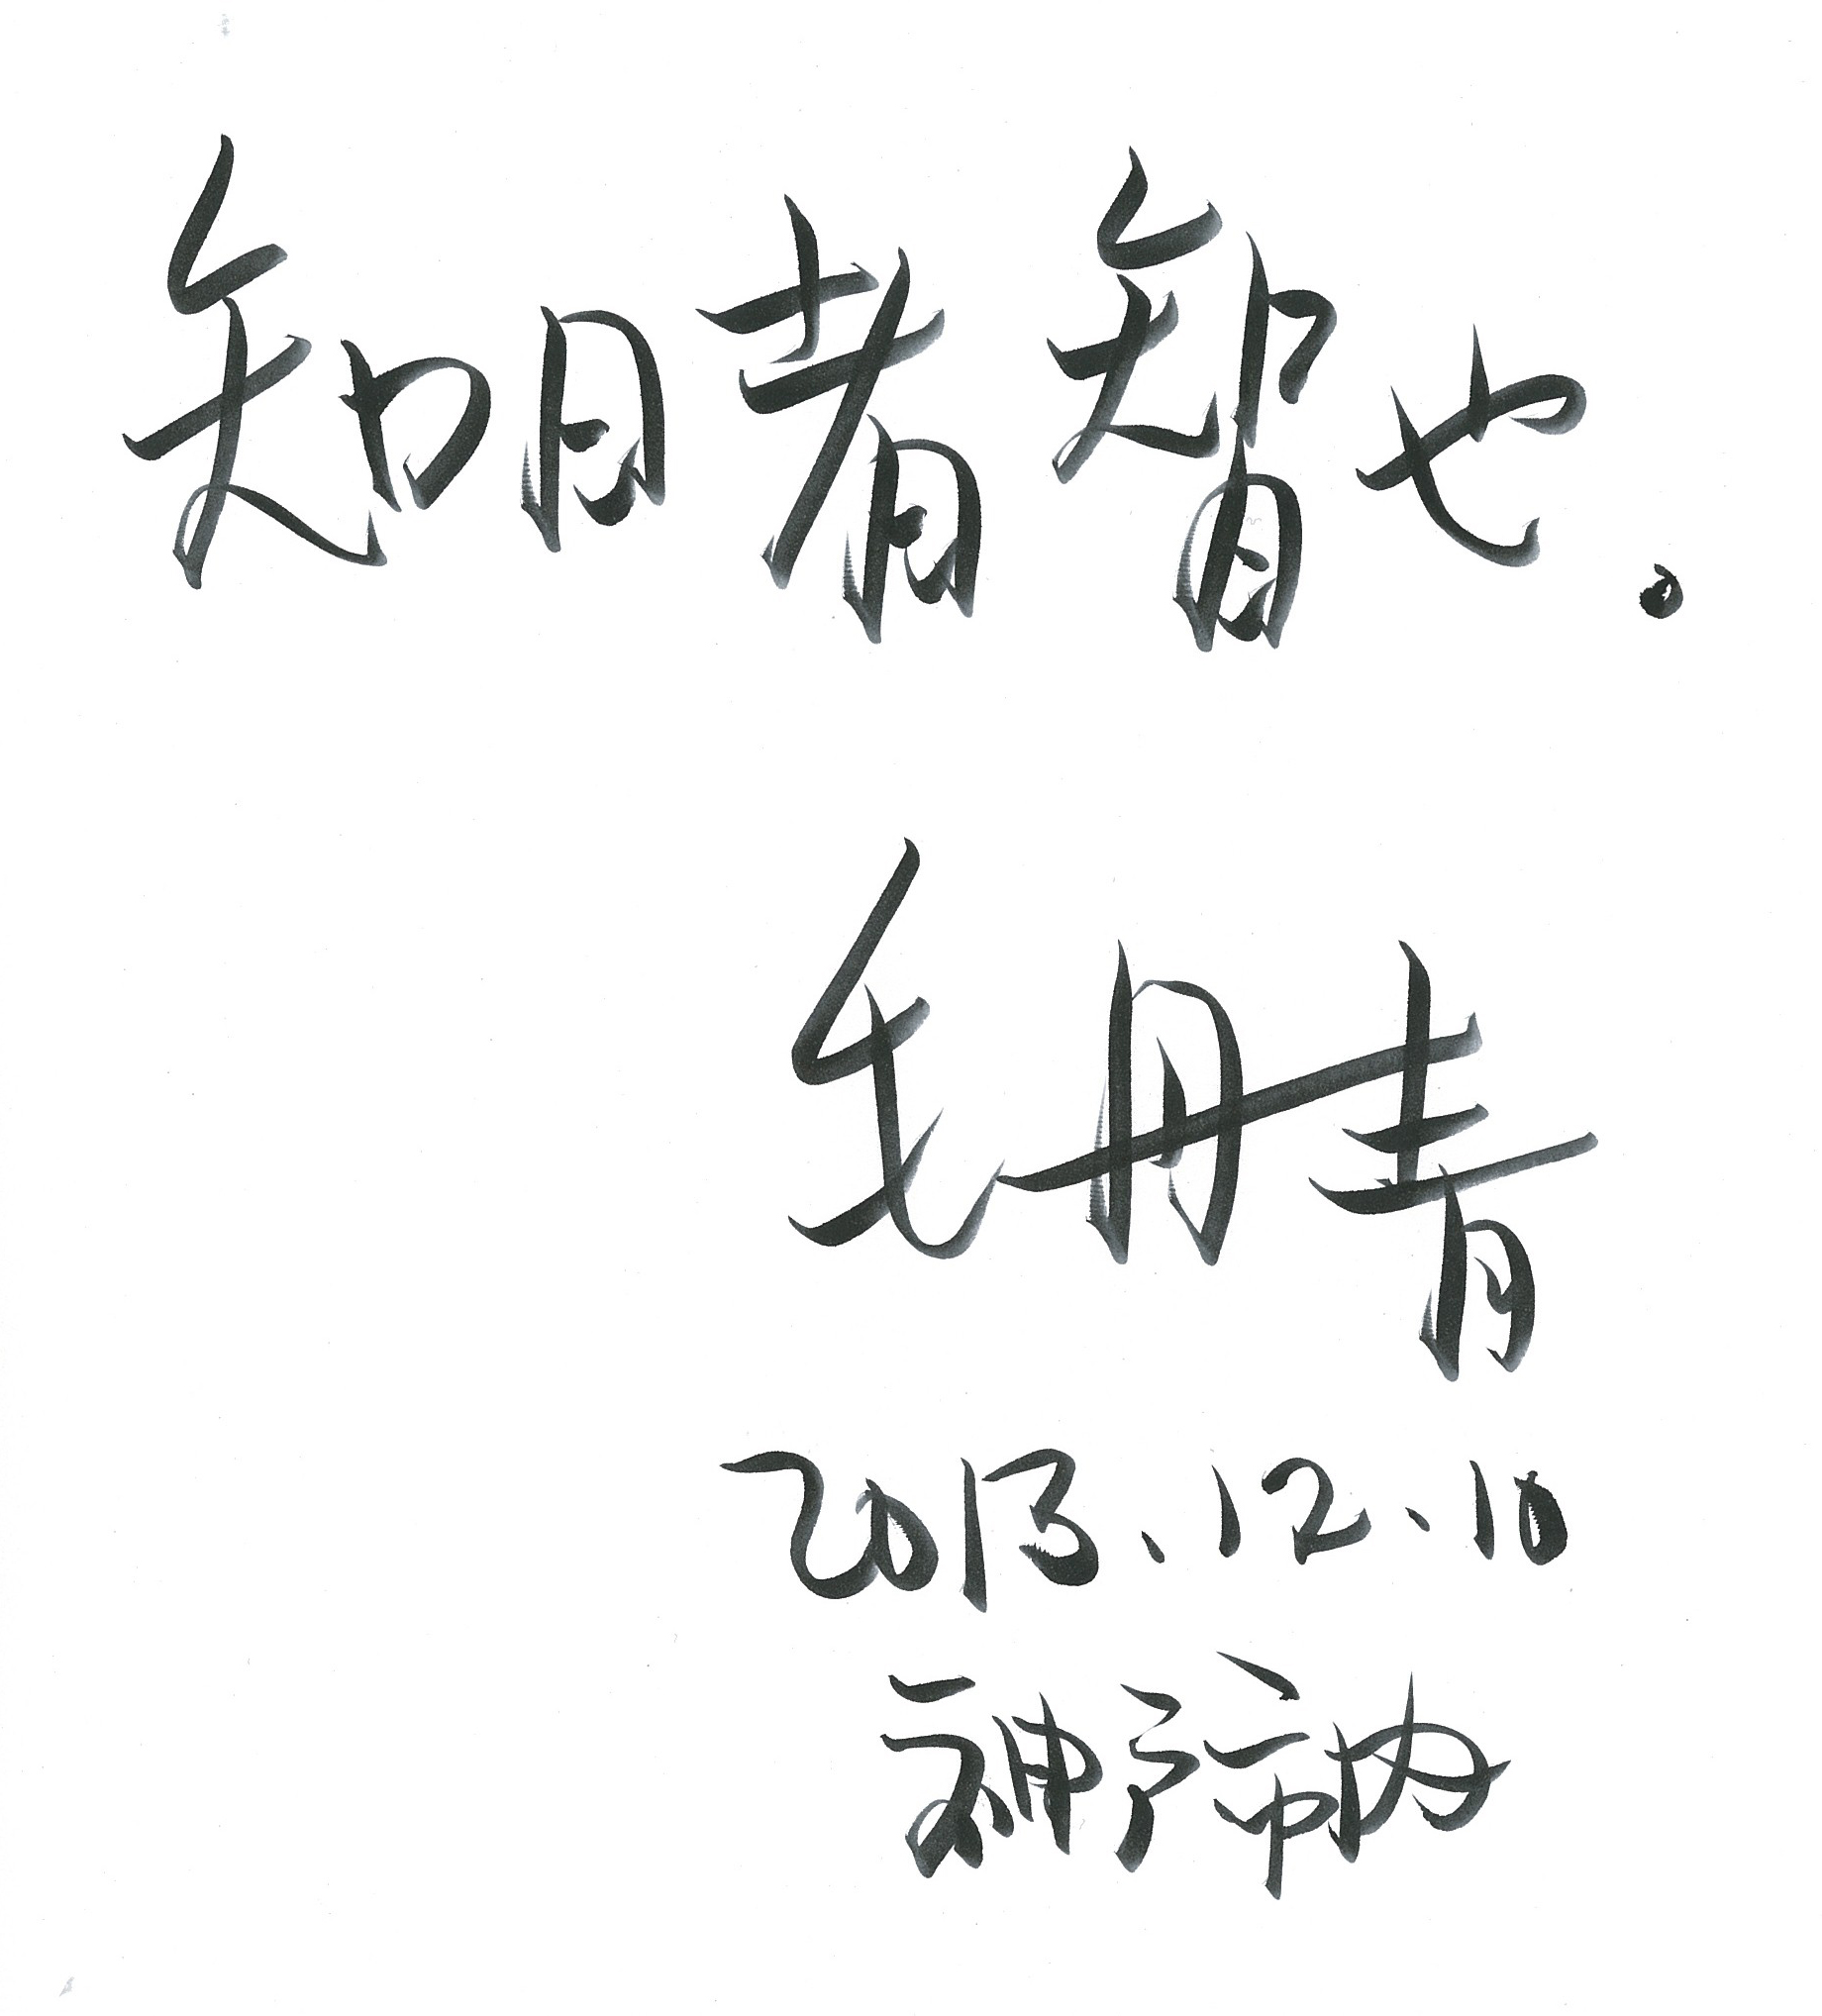 知日者智也。
毛丹青
2013.12.10
神户市内